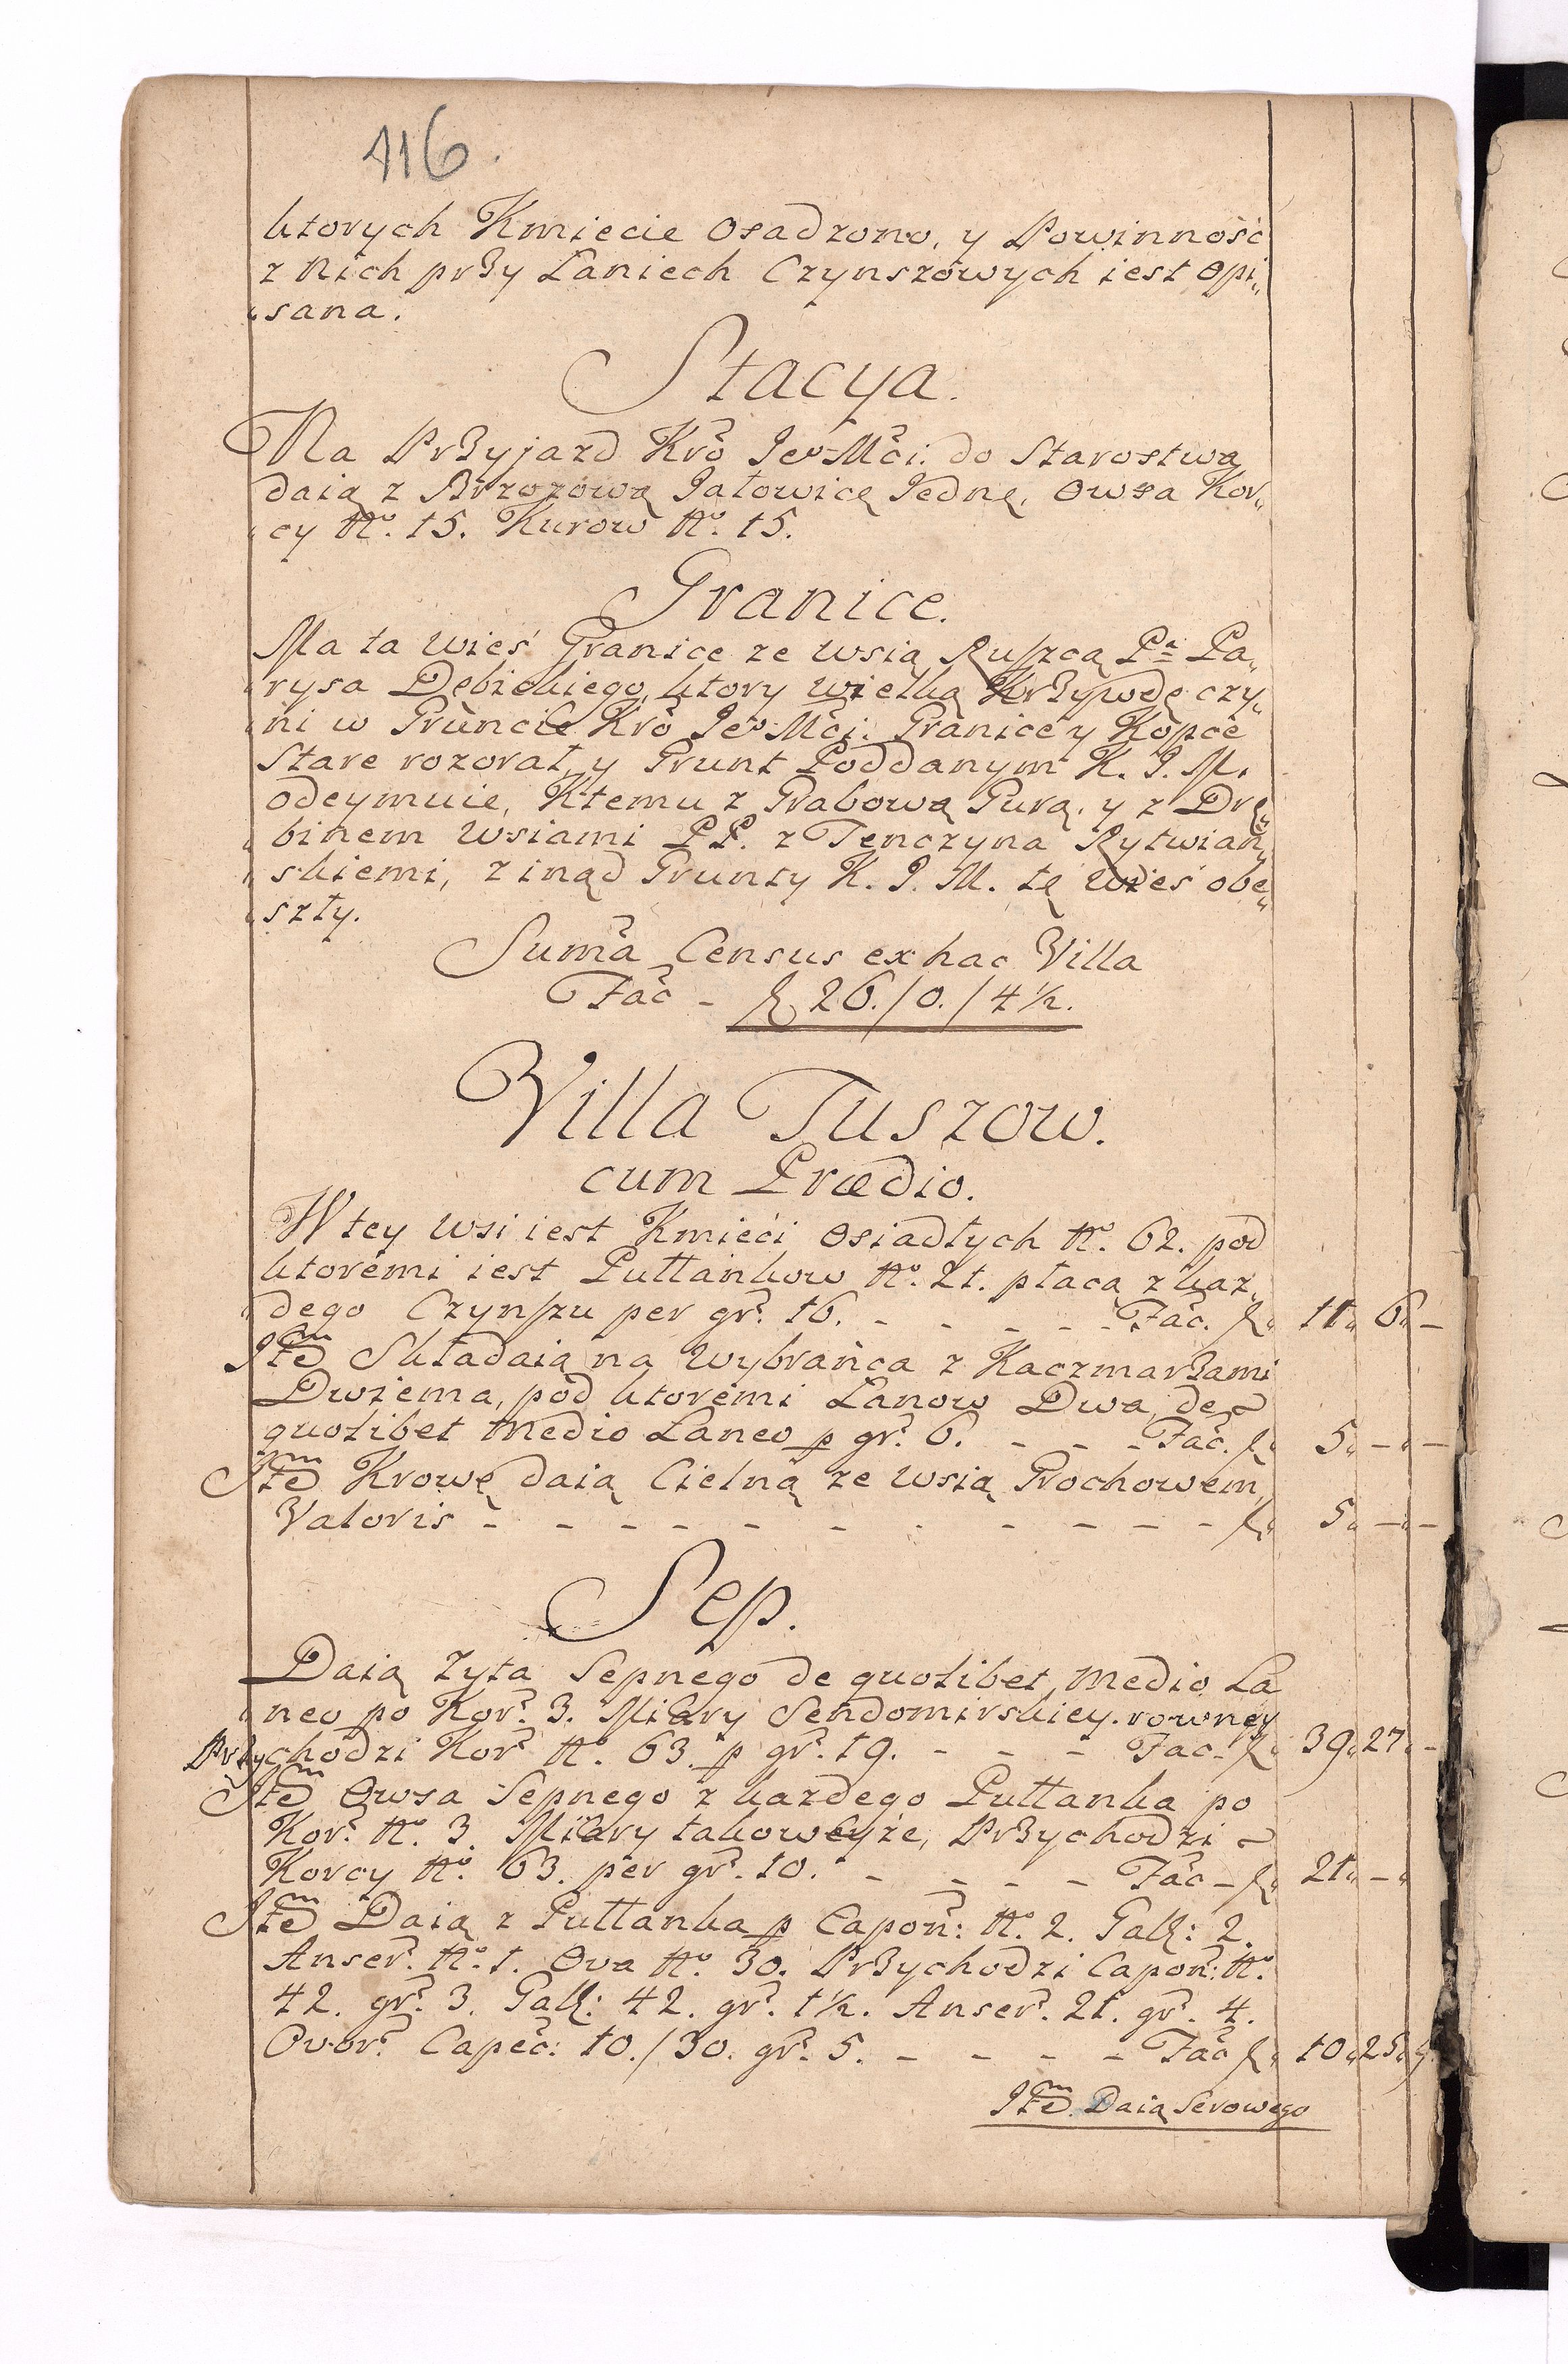 116.
ktorych Kmiecie Osadzono, y Powinność
z Nich przy Łaniech Czynszowych iest opi„
„sana.
Stacya.
Na Przyjazd Kró Jeo Mći: do Starostwa
daią z Brzozową Jałowicę Jednę, Owsa Kor„
„cy No. 15. Kurow No. 15.
Granice.
Ma ta Wieś Granice ze wsią Ruszczą Pa Pa„
„rysa Dębickiego, ktory wielką Krzywdę czy„
„ni w Gruncie Kró Jeo Mći: Granice y Kopce
Stare rozorał, y Grunt Poddanym K. J. M.
odeymuie, Ktemu z Grabową Gurą, y z Drę„
„binem Wsiami PP. z Tenczyna Rytwiań„
„skiemi, z inąd Grunty K. J. M. tę Wieś obe„
„szły.
Suma Census ex hac Villa
Fać - f 26./0./4½.
Villa Tuszow.
cum Prædio.
W tey Wsi iest Kmieći Osiadłych No. 62. pod
ktoremi iest Pułłankow No. 21. płacą z każ„
„dego Czynszu per gr. 16. - - - - - Fać. f„ 11„ 6„ -
Itm Składaią na Wybrańca z Kaczmarzami
Dwiema, pod ktoremi Łanow Dwa, de
quolibet Medio Laneo p gr. 6. - - - Fać. f„ 5„ -„ -
Itm Krowę daią Cielną ze Wsią Grochowem,
Valoris - - - - - - - - - - - f„ 5„ -„ -
Sep.
Daią Zyta Sepnego de quolibet Medio La
„neo po Kor. 3. Miary Sendomirskiey rowney
Przychodzi Kor. No. 63. p gr. 19. - - - Fac - f„ 39„ 27„ -
Itm Owsa Sepnego z każdego Pułłanka po
Kor. No. 3. Miary takoweyże, Przychodzi
Korcy No. 63. per gr. 10. - - - - Fać - f„ 21„ -„
Itm Daią z Pułłanka p Capon: No. 2. Gall: 2.
Anser. No. 1. Ova No. 30. Przychodzi Capon: No.
42. gr. 3. Gall: 42. gr. 1½. Anser. 21. gr. 4.
Ovor. Capeć: 10./30. gr. 5. - - - - Fać f„ 10„ 25„ 9
Itm Daią Serowego